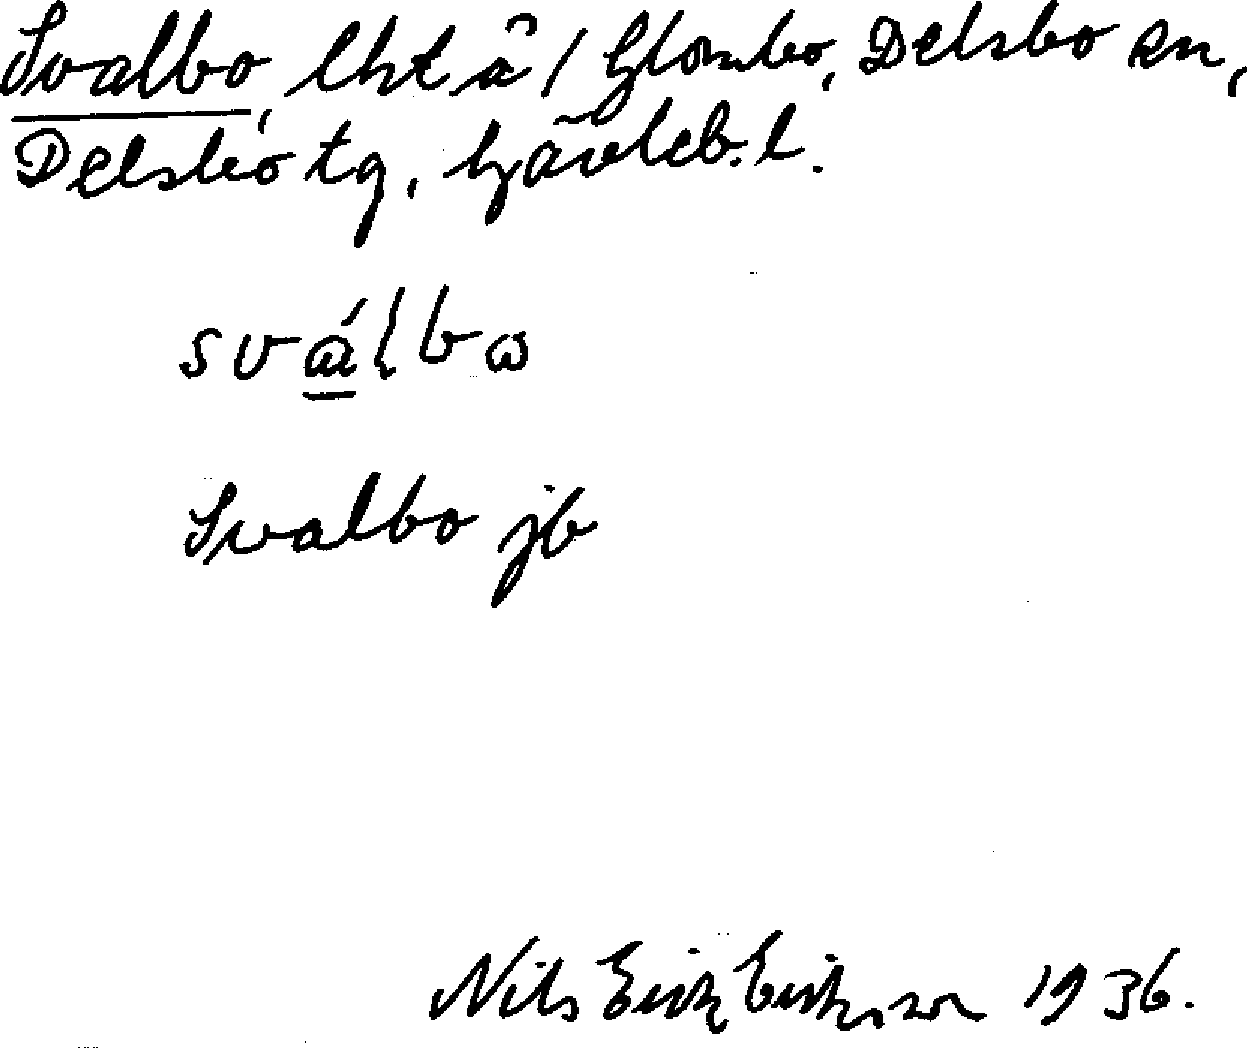 Svalbo, lht å 1 Glombo, Delsbo sn,
Delsbo tg, Gävleb. l.
sválbω
Svalbo jb
Nils Erik Eriksson 1936.